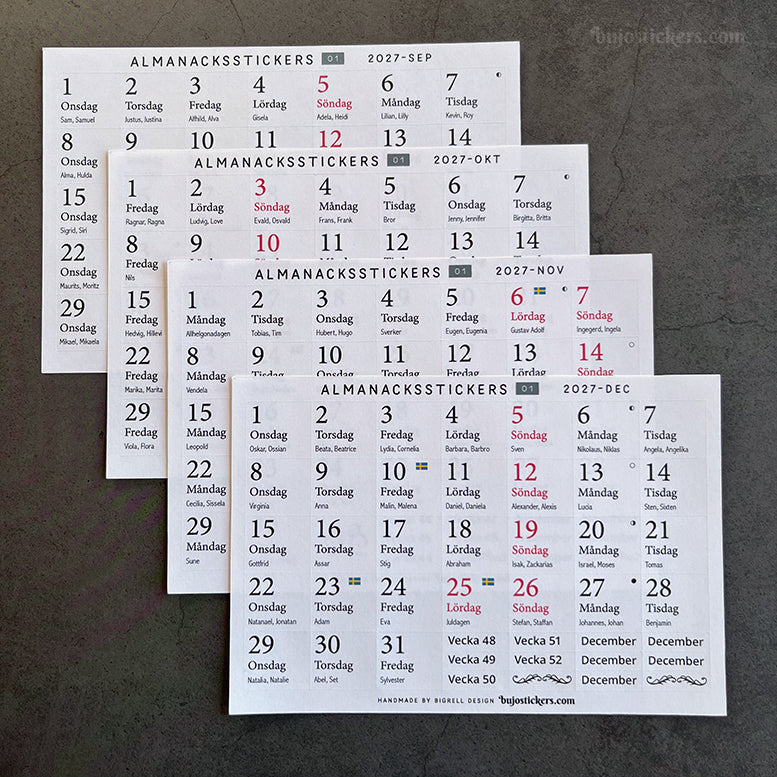 bujostickers.com
ALMANACKSSTICKERS 01 2027-SEP
1 2 3 4 5 6 7
Onsdag Torsdag Fredag Lördag Söndag Måndag Tisdag
Sam, Samuel Justus, Justina Alfhild, Alva Gisela Adela, Heidi Lilian, Lilly Kevin, Roy
8 9 10 11 12 13 14
Onsdag
Alma, Hulda
15
Onsdag
Sigrid, Siri
22
Onsdag
Maurits, Moritz
29
Onsdag
Mikael, Mikaela
ALMANACKSSTICKERS 01 2027-OKT
1 2 3 4 5 6 7
Fredag Lördag Söndag Måndag Tisdag Onsdag Torsdag
Ragnar, Ragna Ludvig, Love Evald, Osvald Frans, Frank Bror Jenny, Jennifer Birgitta, Britta
8 9 10 11 12 13 14
Fredag
Nils
15
Fredag
Hedvig, Hillevi
22
Fredag
Marika, Marita
29
Fredag
Viola, Flora
ALMANACKSSTICKERS 01 2027-NOV
1 2 3 4 5 6 7
Måndag Tisdag Onsdag Torsdag Fredag Lördag Söndag
Allhelgonadagen Tobias, Tim Hubert, Hugo Sverker Eugen, Eugenia Gustav Adolf Ingegerd, Ingela
8 9 10 11 12 13 14
Måndag Tisdag Onsdag Torsdag Fredag Lördag Söndag
Vendela
15
Måndag
Leopold
22
Måndag
Cecilia, Sissela
29
Måndag
Sune
ALMANACKSSTICKERS 01 2027-DEC
1 2 3 4 5 6 7
Onsdag Torsdag Fredag Lördag Söndag Måndag Tisdag
Oskar, Ossian Beata, Beatrice Lydia, Cornelia Barbara, Barbro Sven Nikolaus, Niklas Angela, Angelika
8 9 10 11 12 13 14
Onsdag Torsdag Fredag Lördag Söndag Måndag Tisdag
Virginia Anna Malin, Malena Daniel, Daniela Alexander, Alexis Lucia Sten, Sixten
15 16 17 18 19 20 21
Onsdag Torsdag Fredag Lördag Söndag Måndag Tisdag
Gottfrid Assar Stig Abraham Isak, Zackarias Israel, Moses Tomas
22 23 24 25 26 27 28
Onsdag Torsdag Fredag Lördag Söndag Måndag Tisdag
Natanael, Jonatan Adam Eva Juldagen Stefan, Staffan Johannes, Johan Benjamin
29 30 31 Vecka 48 Vecka 51 December December
Onsdag Torsdag Fredag Vecka 49 Vecka 52 December December
Natalia, Natalie Abel, Set Sylvester Vecka 50 December
HANDMADE BY BIGRELL DESIGN bujostickers.com